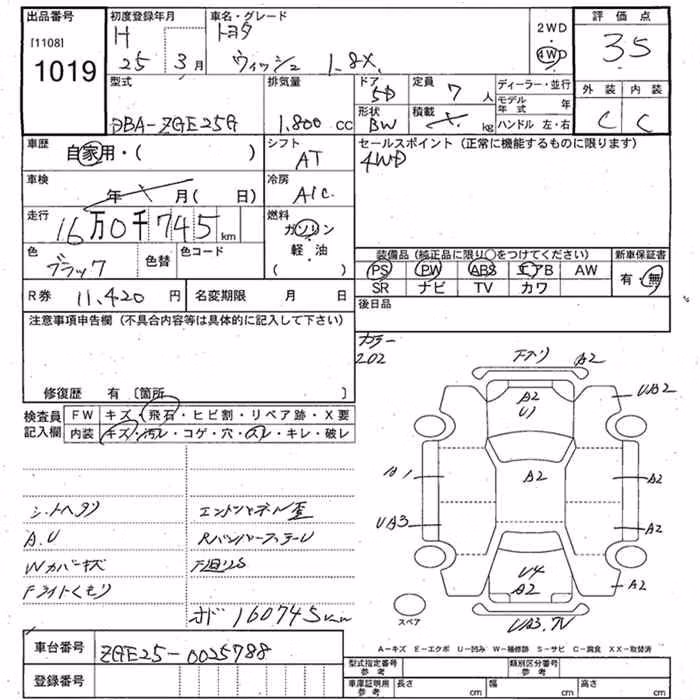 出品番号
[1108]
1019
初度登録年月
H
25 3月
車名・グレード
トヨタ
ウィッシュ 1.8X
2WD
4WD
評価点
3.5
外装 内装
C C
型式
DBA-ZGE25G
排気量
1.800 cc
ドア
5D
形状
BW
定員
7 人
積載
kg
ディーラー・並行
モデル年式 年
ハンドル 左・右
車歴
自家用・( )
シフト
AT
セールスポイント (正常に機能するものに限ります)
4WD
車検
年 月( 日)
冷房
A/C
走行
16万0千745 km
燃料
ガソリン
軽・油
( )
色
ブラック
色替
色コード
装備品 (純正品に限り○をつけてください)
PS PW ABS エアB AW
SR ナビ TV カワ
新車保証書
有・無
R券 11,420 円
名変期限 月 日
後日品
注意事項申告欄 (不具合内容等は具体的に記入して下さい)
修復歴 有 〔箇所 〕
カラー
202
検査員
記入欄
FW キズ・飛石・ヒビ割・リペア跡・X要
内装 キズ・汚レ・コゲ・穴・スレ・キレ・破レ
シートヘタリ
A.U
Wカバーキズ
Fライトくもり
RバンパーステーU
下廻りS
オド 160745km
A2
UA2
A2
U1
A1
A2
A2
UA3
A2
U4
A2
A2
スペア
A-キズ E-エクボ U-凹み W-補修跡 S-サビ C-腐食 XX-取替済
車台番号
ZGE25-0025788
登録番号
型式指定番号
参考
類別区分番号
参考
車庫証明用
参考
長さ cm
幅 cm
高さ cm